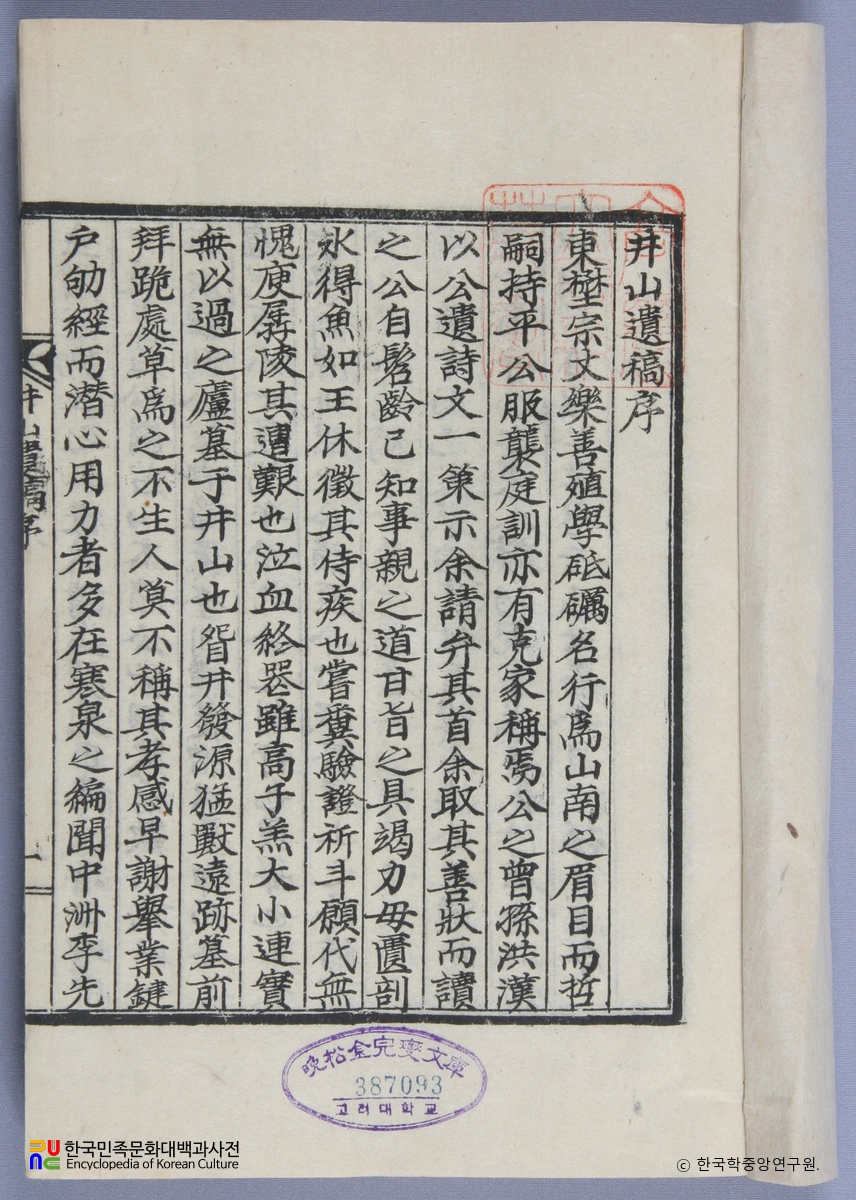 井山遺稿序
東壄宗丈樂善殖學砥礪名行爲山南之眉目而哲
嗣持平公服襲庭訓亦有克家稱焉公之曾孫洪漢
以公遺詩文一策示余請弁其首余取其善狀而讀
之公自髫齡已知事親之道甘旨之具竭力毋匱剖
氷得魚如王休徵其侍疾也嘗糞驗證祈斗願代無
愧庾孱陵其遭艱也泣血終喪雖高子羔大小連實
無以過之廬墓于井山也眢井發源猛獸遠跡墓前
拜跪處草爲之不生人莫不稱其孝感早謝擧業鍵
戶劬經而潛心用力者多在寒泉之編聞中洲李先
井山遺稿序
一
晩松金完燮文庫
387093
고려대학교
한국민족문화대백과사전
Encyclopedia of Korean Culture
ⓒ 한국학중앙연구원.